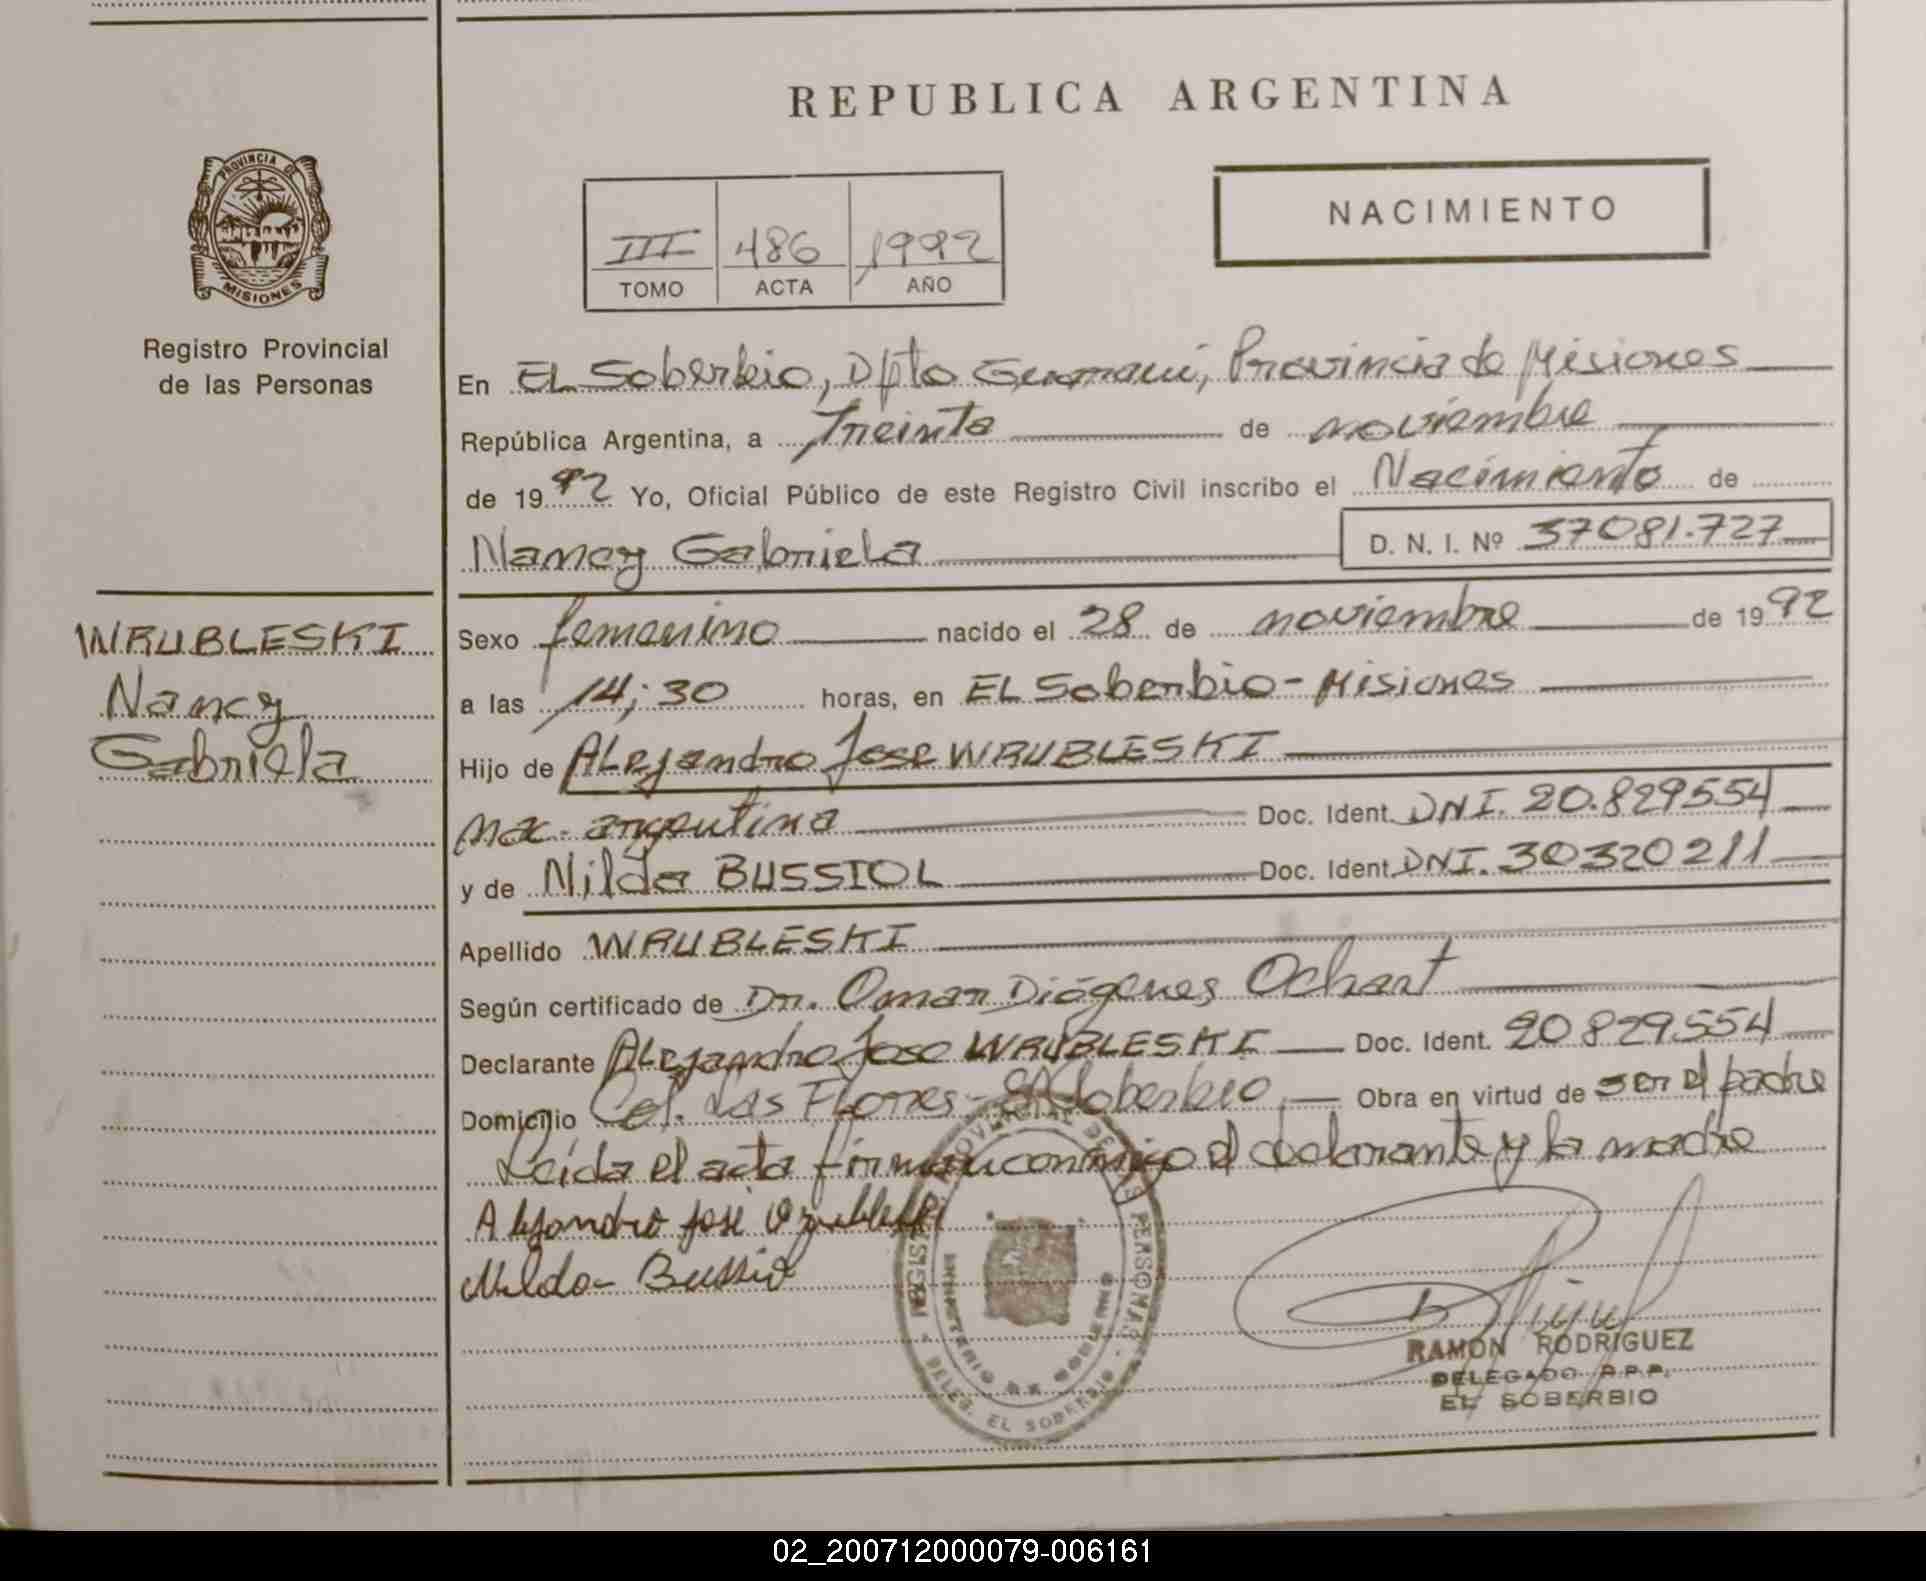 REPUBLICA ARGENTINA
PROVINCIA DE
MISIONES
Registro Provincial
de las Personas
III 486 1992
TOMO ACTA AÑO
NACIMIENTO
En EL Soberbio, Dpto Guaraní, Provincia de Misiones
República Argentina, a Treinta de noviembre
de 1992 Yo, Oficial Público de este Registro Civil inscribo el Nacimiento de
Nancy Gabriela D. N. I. Nº 37081.727
WRUBLESKI
Nancy
Gabriela
Sexo femenino nacido el 28 de noviembre de 1992
a las 14;30 horas, en EL Soberbio - Misiones
Hijo de ALejandro Jose WRUBLESKI
nac. argentina Doc. Ident. DNI. 20.829554
y de Nilda BUSSIOL Doc. Ident. DNI. 30320211
Apellido WRUBLESKI
Según certificado de Dr. Omar Diógenes Ochart
Declarante ALejandro Jose WRUBLESKI Doc. Ident. 20829.554
Domicilio Col. Las Flores - El Soberbio Obra en virtud de ser el padre
Leída el acta firman conmigo el declarante y la madre
Alejandro José
Nilda Bussio
PERSONAS
MISIONES
MINISTERIO DE GOBIERNO
DELEG. EL SOBERBIO
RAMON RODRIGUEZ
DELEGADO R.P.P.
EL SOBERBIO
02_200712000079-006161